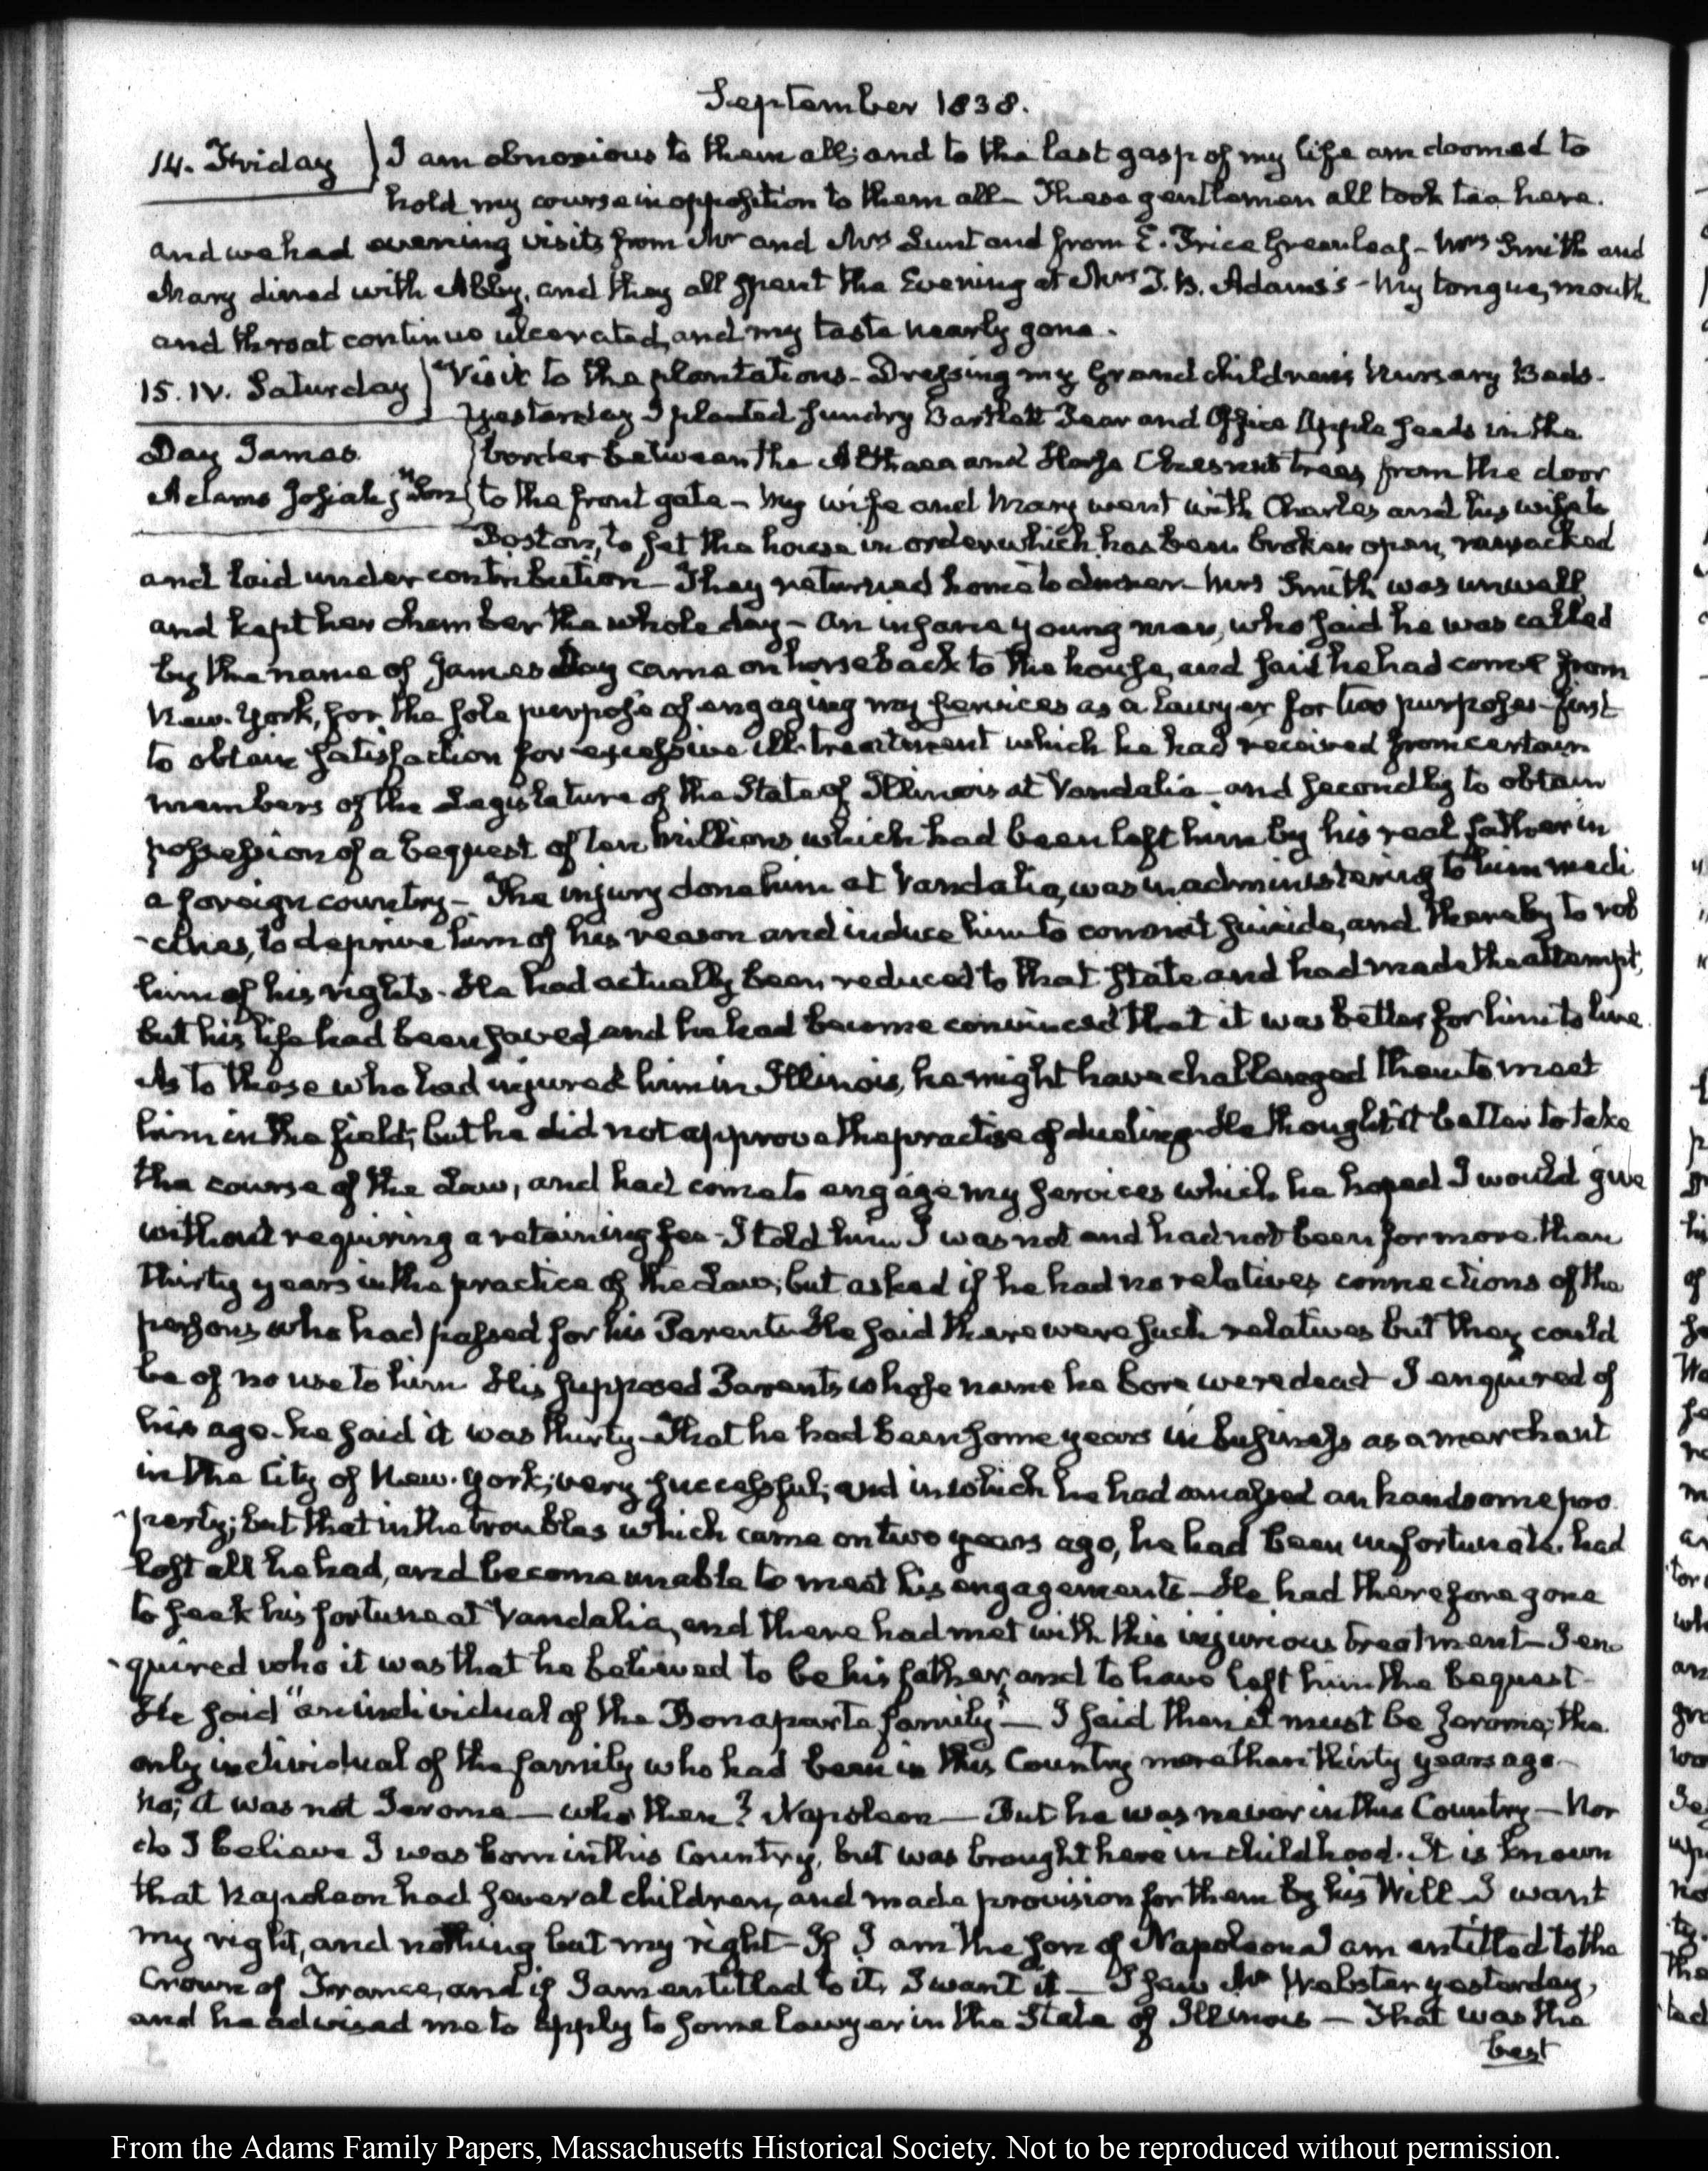 September 1838.
14. Friday } I am obnoxious to them all; and to the last gasp of my life am doomed to
hold my course in opposition to them all— These gentlemen all took tea here.
and we had evening visits from Mr and Mrs Lunt and from E. Price Greenleaf— Mrs Smith and
Mary dined with Abby, and they all spent the Evening at Mrs T. B. Adams's— My tongue, mouth
and throat continue ulcerated, and my taste nearly gone.
15. IV. Saturday } Visit to the plantations— Dressing my Grandchildren's Nursary Beds.
Yesterday I planted sundry Bartlett Pear and Apple seeds in the
Day James. } border between the Althaea and Horse Chesnut trees, from the door
Adams Josiah jun. } to the front gate— My wife and Mary went with Charles and his wife to
Boston, to set the house in order which has been broken open, ransacked
and laid under contribution— They returned home to dinner— Mrs Smith was unwell
and kept her chamber the whole day— An insane young man, who said he was called
by the name of James Day came on horseback to the house, and said he had come from
New-York, for the sole purpose of engaging my services as a lawyer for two purposes— first
to obtain satisfaction for excessive ill-treatment which he had received from certain
members of the Legislature of the State of Illinois at Vandalia— and secondly to obtain
possession of a bequest of ten Millions which had been left him by his real father in
a foreign country— The injury done him at Vandalia, was in administering to him medi
-cines, to deprive him of his reason and induce him to commit suicide, and thereby to rob
him of his rights. He had actually been reduced to that state and had made the attempt,
but his life had been saved, and he had become convinced that it was better for him to live.
As to those who had injured him in Illinois, he might have challenged them to meet
him in the field; but he did not approve the practise of dueling. He thought it better to take
the course of the Law, and had come to engage my services which he hoped I would give
without requiring a retaining fee— I told him I was not and had not been for more than
thirty years in the practice of the Law; but asked if he had no relatives, connections of the
persons who had passed for his Parents— He said there were such relatives but they could
be of no use to him— His supposed Parents whose name he bore were dead— I enquired of
his age— he said it was thirty— That he had been some years in business as a merchant
in the City of New-York; very successful; and in which he had amassed an handsome pro
-perty; but that in the troubles which came on two years ago, he had been unfortunate. had
lost all he had, and become unable to meet his engagements— He had therefore gone
to seek his fortune at Vandalia, and there had met with this injurious treatment— I en
-quired who it was that he believed to be his father, and to have left him the bequest—
He said "an individual of the Bonaparte family"— I said then it must be Jerome; the
only individual of the family who had been in this Country more than thirty years ago—
No; it was not Jerome— who then? Napoleon— But he was never in this Country— Nor
do I believe I was born in this Country, but was brought here in childhood. It is known
that Napoleon had several children, and made provision for them by his Will— I want
my right, and nothing but my right— If I am the son of Napoleon I am entitled to the
Crown of France, and if I am entitled to it, I want it— I saw Mr Webster yesterday,
and he advised me to apply to some lawyer in the State of Illinois— That was the
best
From the Adams Family Papers, Massachusetts Historical Society. Not to be reproduced without permission.